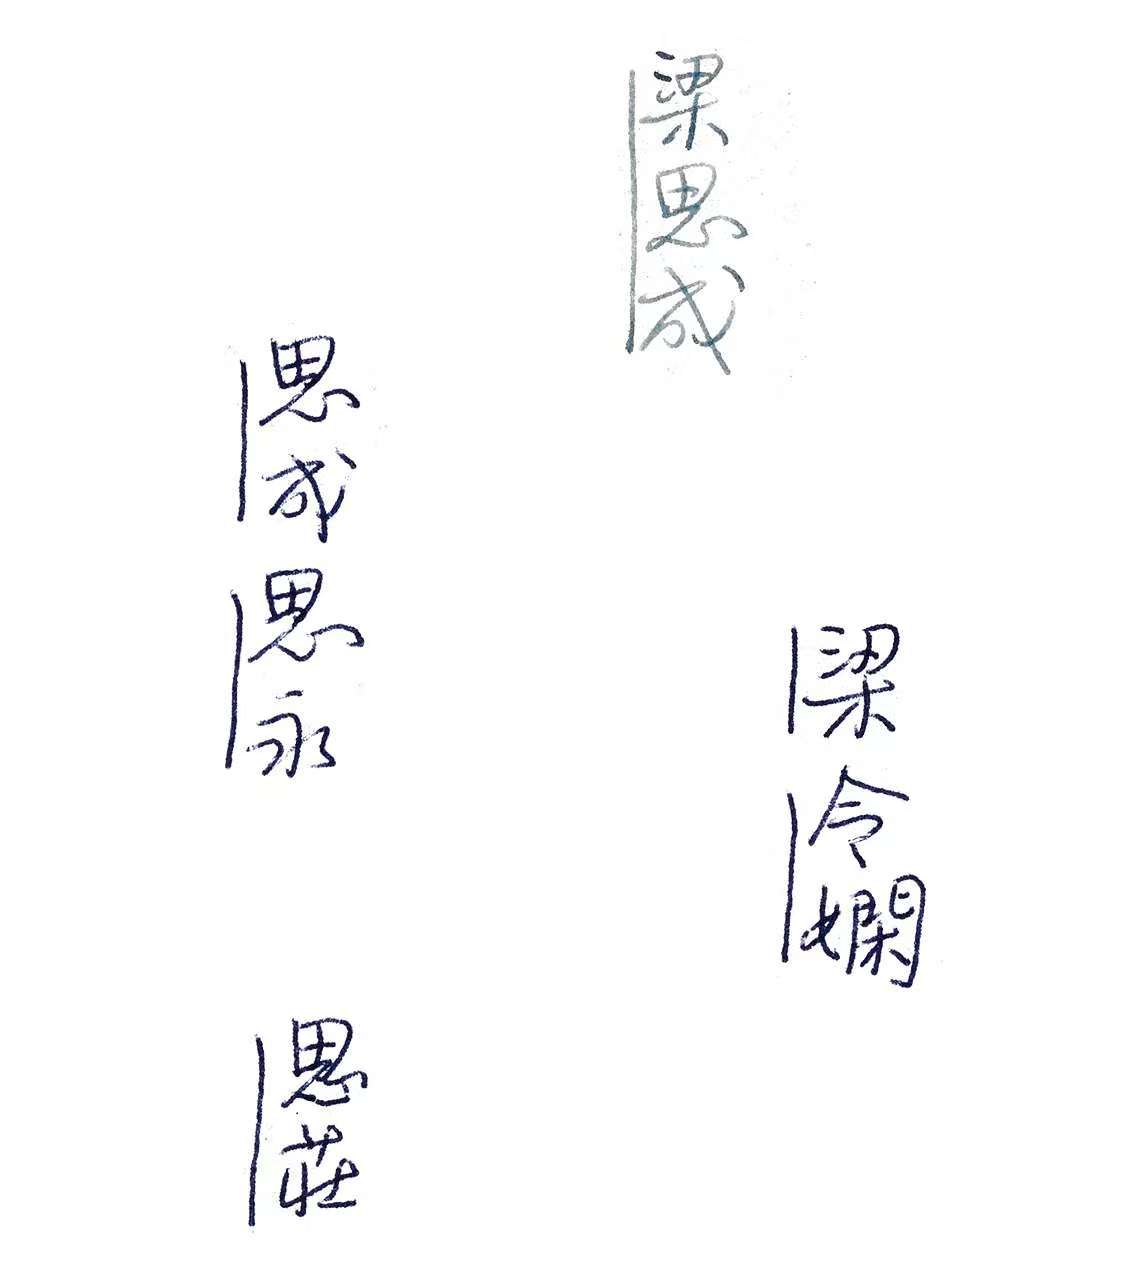 梁思成
梁
令嫻
思成
思永
思莊